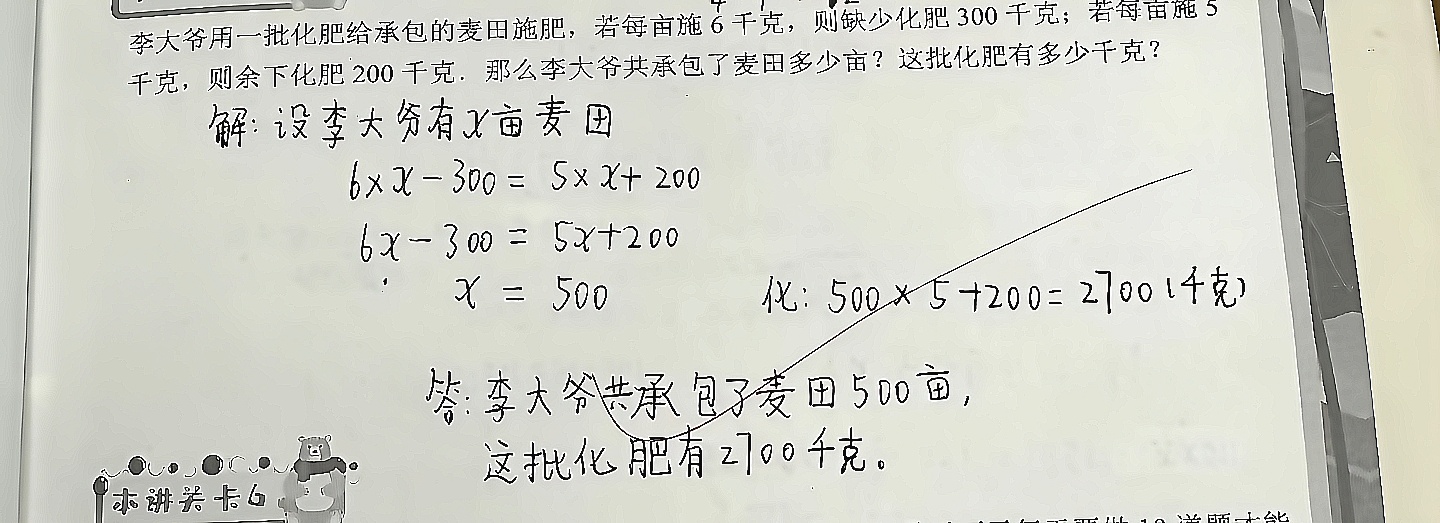 李大爷用一批化肥给承包的麦田施肥，若每亩施 6 千克，则缺少化肥 300 千克；若每亩施 5
千克，则余下化肥 200 千克．那么李大爷共承包了麦田多少亩？这批化肥有多少千克？
解：设李大爷有x亩麦田
6×x－300＝5×x＋200
6x－300＝5x＋200
x＝500
化：500×5＋200＝2700（千克）
答：李大爷共承包了麦田500亩，
这批化肥有2700千克。
本讲关卡6